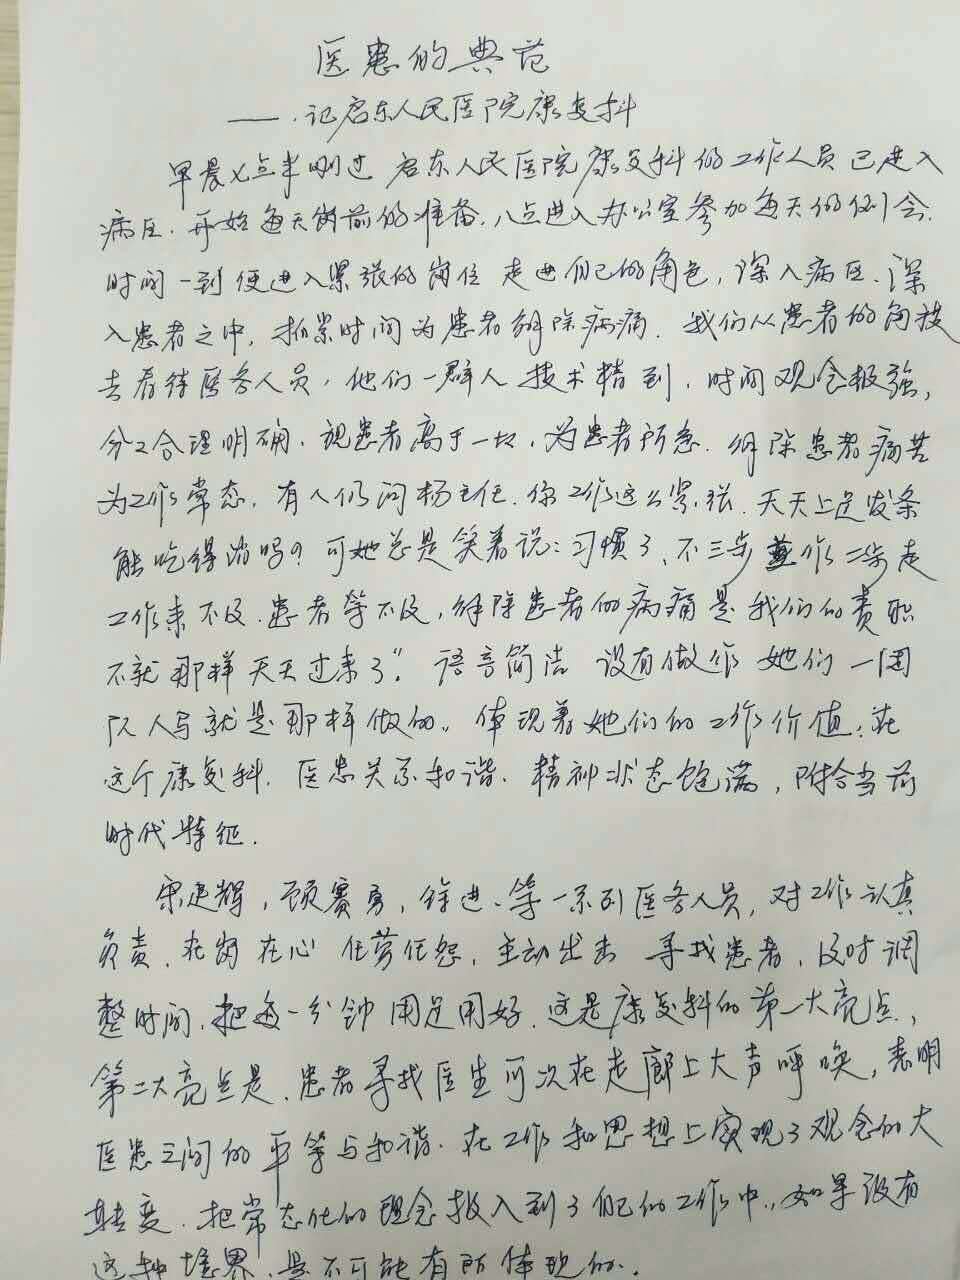 医患的典范
——.记启东人民医院康复科
早晨七点半刚过 启东人民医院康复科的工作人员已走入
病区.开始每天岗前的准备.八点进入办公室参加每天的例会.
时间一到便进入紧张的岗位 走进自己的角色,深入病区.深
入患者之中,抓紧时间为患者解除病痛.我们从患者的角度
去看待医务人员,他们一群人技术精到,时间观念极强,
分工合理明确.视患者高于一切,为患者所急.解除患者病苦
为工作常态.有人们问杨主任.你工作这么紧张.天天上足发条
能吃得消吗?可她总是笑着说:习惯了、不三步并作二步走
工作来不及.患者等不及,解除患者的病痛是我们的责职
不就那样天天过来了."语言简洁 没有做作 她们一团
队人马就是那样做的。体现着她们的工作价值:在
这个康复科.医患关系和谐.精神状态饱满,附合当前
时代特征.
宋建辉,顾赛勇,徐进、等一系列医务人员,对工作认真
负责.在岗在心 任劳任怨,主动出击 寻找患者,及时调
整时间.把每一分钟用足用好.这是康复科的第一大亮点,
第二大亮点是.患者寻找医生可次在走廊上大声呼唤,表明
医患之间的平等与和谐.在工作和思想上实现了观念的大
转变.把常态化的理念投入到了自己的工作中.,如果没有
这种境界.是不可能有所体现的..